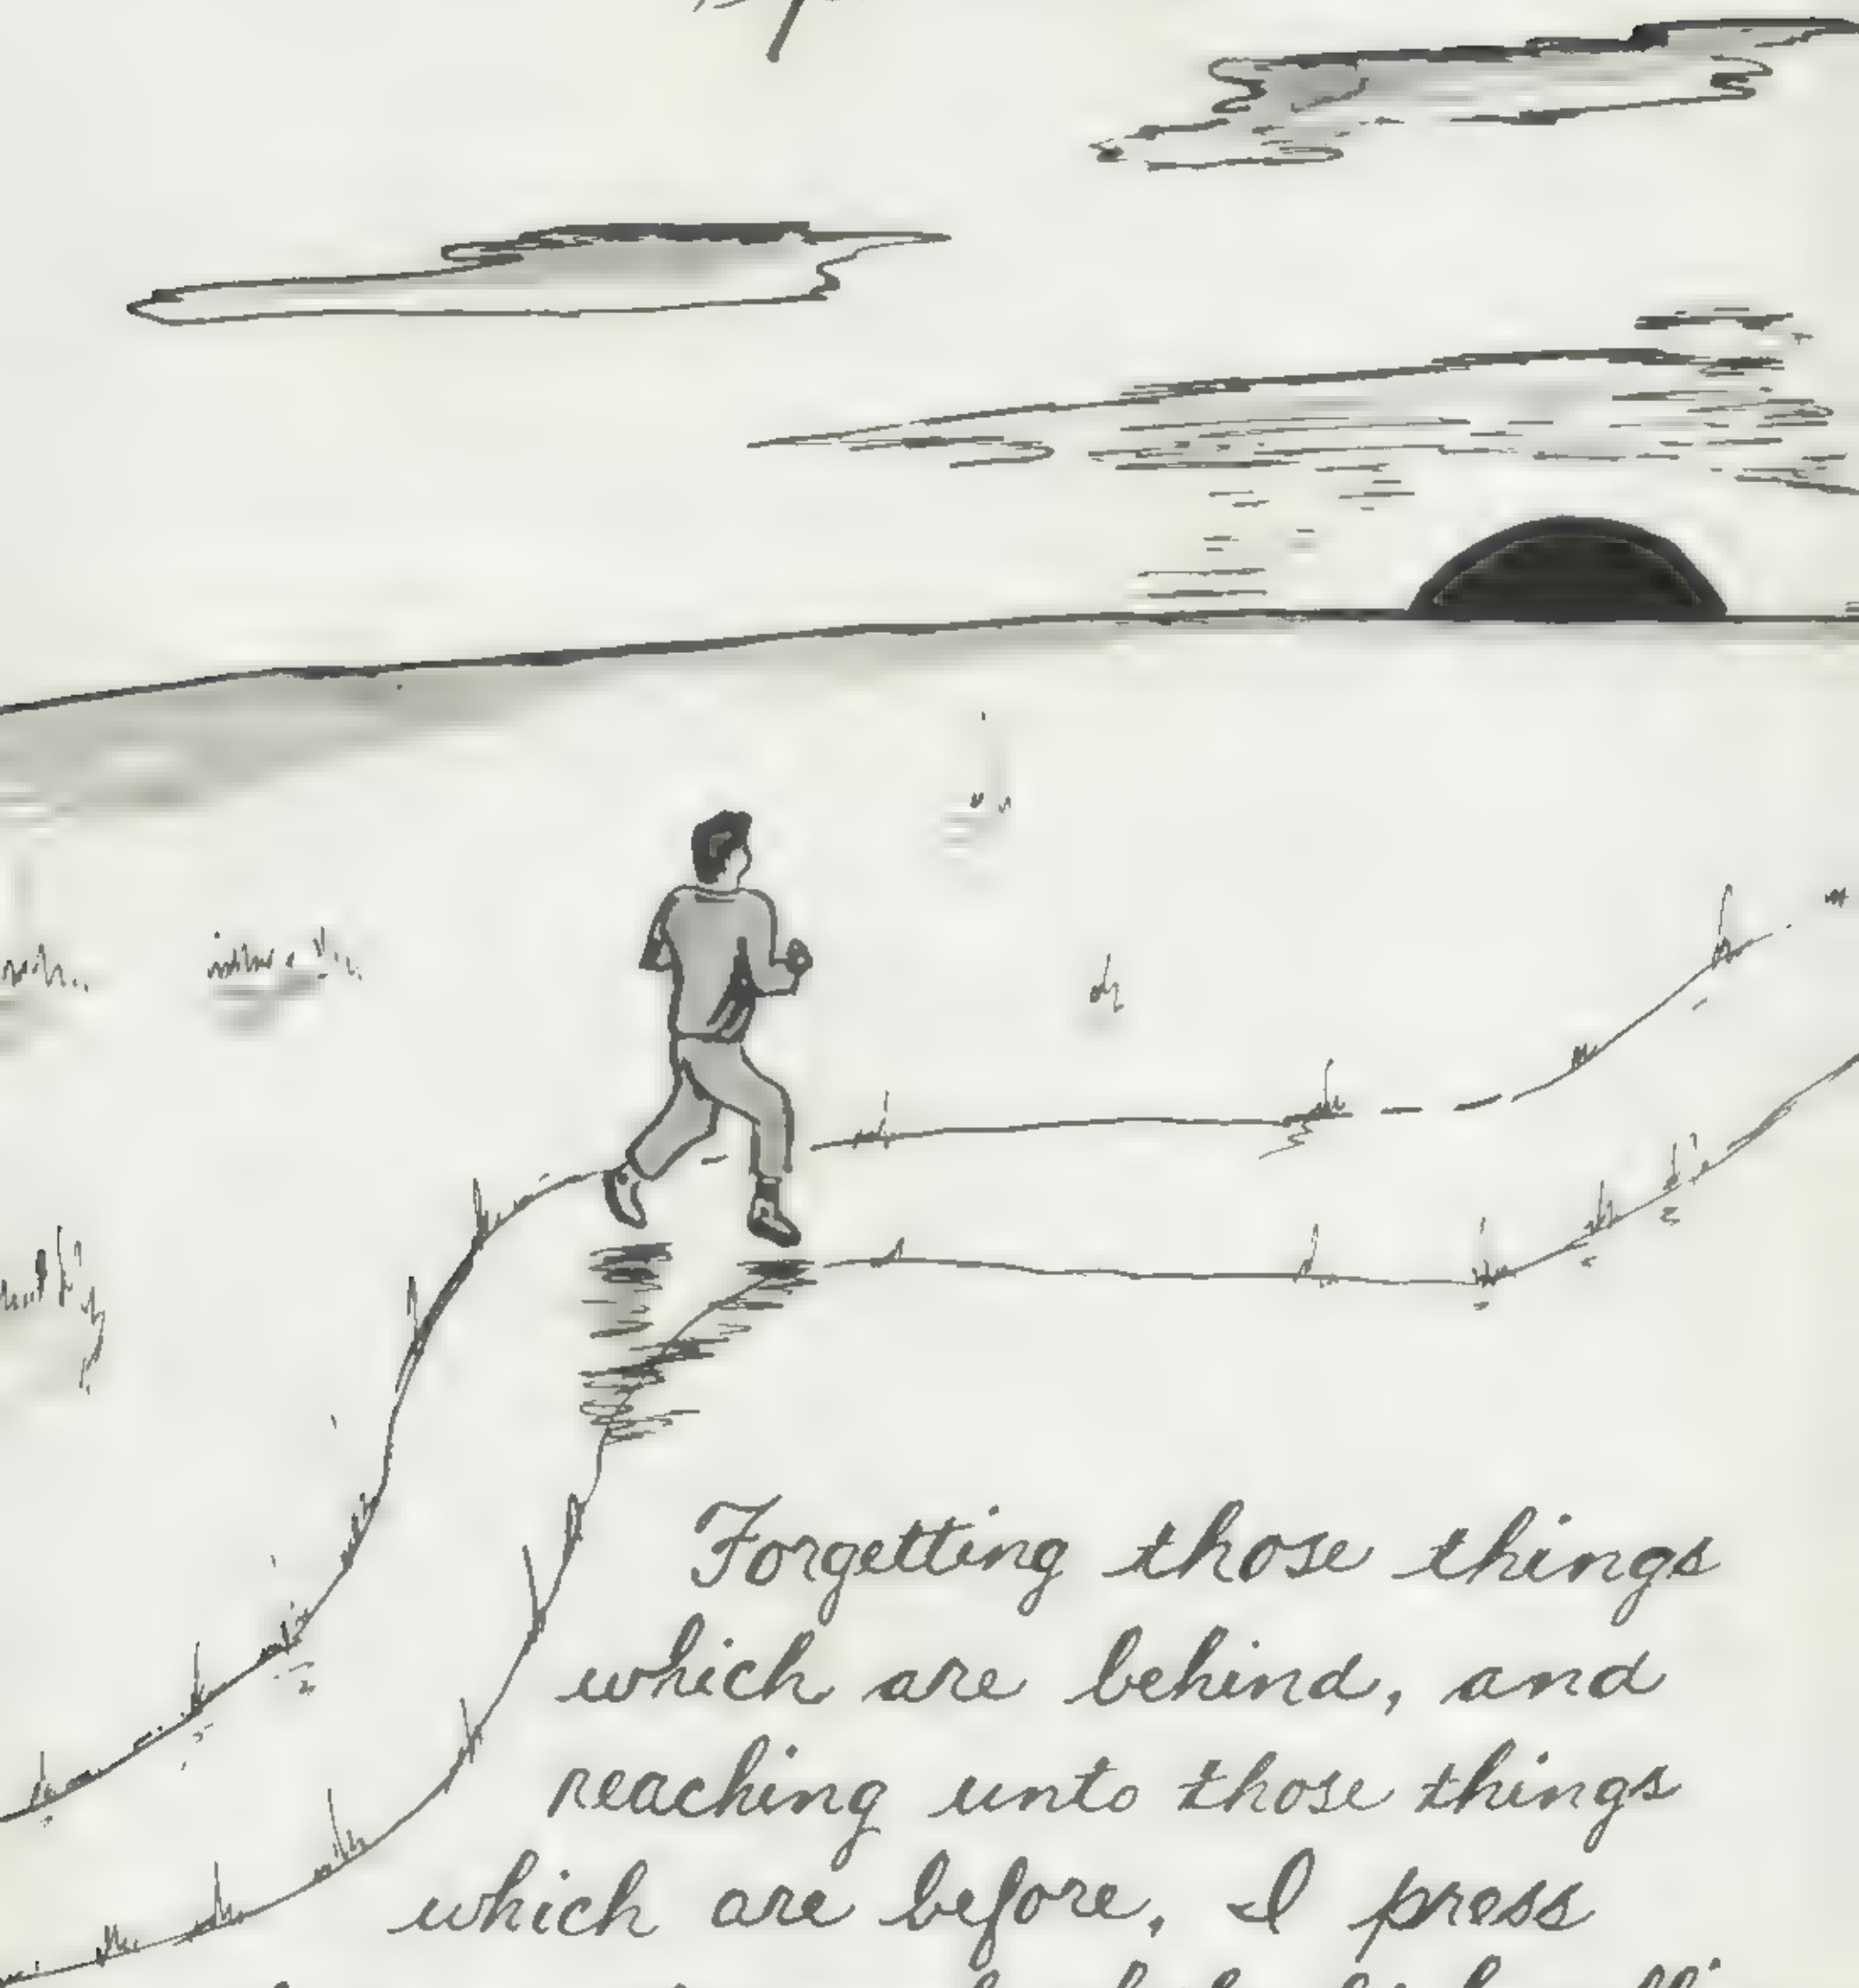 Forgetting those things
which are behind, and
reaching unto those things
which are before, I press